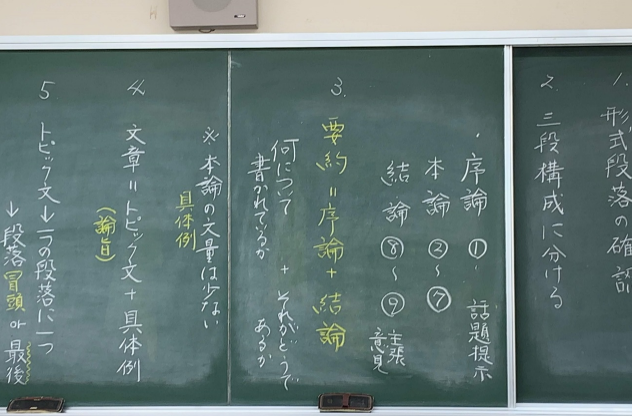 1. 形式段落の確認
2. 三段構成に分ける
・序論 ① 話題提示
本論 ②〜⑦
結論 ⑧〜⑨ 主張 意見
3. 要約＝序論＋結論
何について書かれているか ＋ それがどうであるか
※本論の文量は少ない
具体例
4. 文章＝トピック文＋具体例
(論旨)
5 トピック文→一つの段落に一つ
→段落冒頭or最後